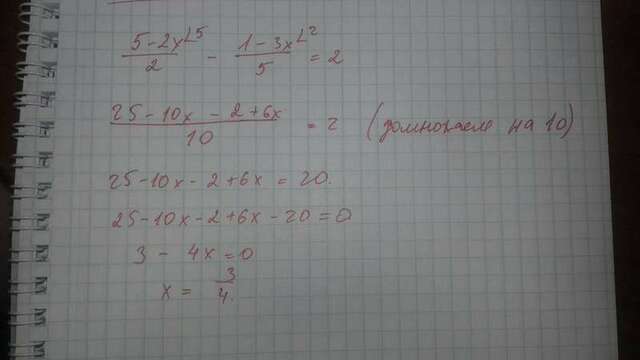 (5-2x)/2 ∟5 - (1-3x)/5 ∟2 = 2
(25-10x-2+6x)/10 = 2 (домножаем на 10)
25-10x-2+6x = 20.
25-10x-2+6x-20=0
3-4x=0
x = 3/4.